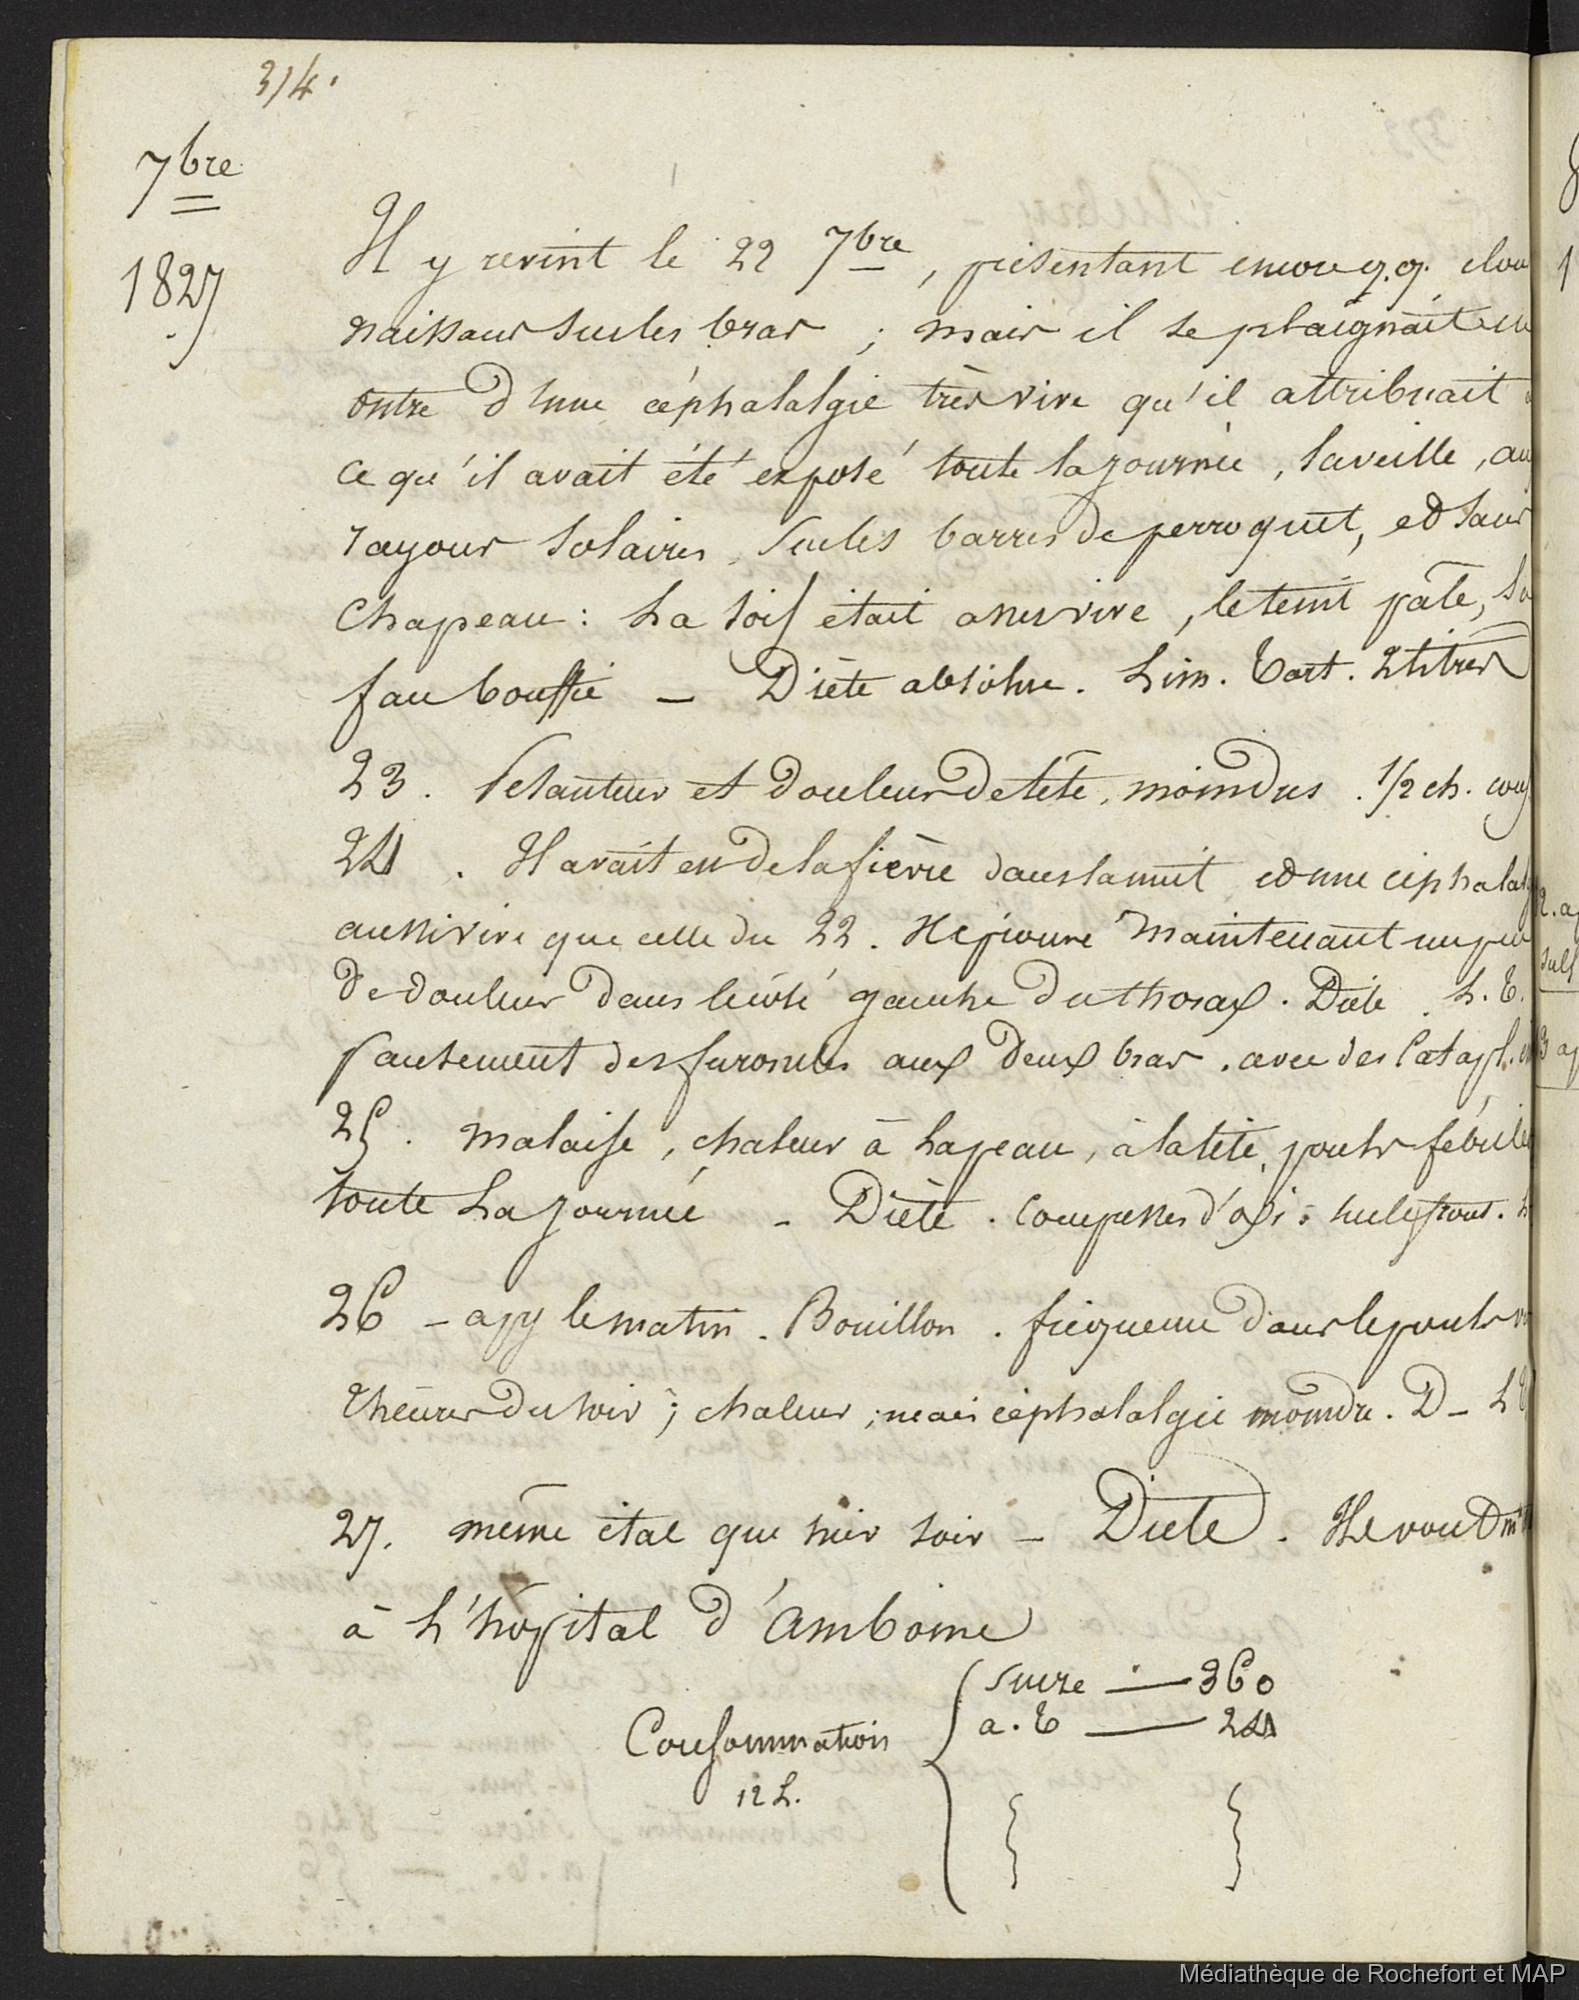 314.
7bre
1827
Il y revint le 22 7bre, présentant encore q.q. clou
naissans sur les bras ; mais il se plaignait en
outre d'une céphalalgie très vive qu'il attribuait
ce qu'il avait été exposé toute la journée, la veille, aux
rayons solaires, sur les barres de perroquet, et sans
chapeau : La soif était assez vive, le teint pâle, la
face bouffie — Diète absolue. Lim. Tart. 2 litres
23. Pesanteur et douleur de tête, moindres. 1/2 ch. couf
24. Il avait eu de la fièvre dans la nuit et une céphalal
aussi vive que celle du 22. Il éprouve maintenant un peu
de douleur dans le côté gauche du thorax. Diète. L. T.
pansement des furoncles aux deux bras. avec des Catapl.
25. malaise, chaleur à la peau, à la tête, pouls fébrile
toute la journée - Diète. Compresses d'oxi: sur le front.
26 - apy le matin. Bouillon. fréquence dans le pouls
2 heures du soir ; chaleur ; mais céphalalgie moindre. D - L T
27. même état que hier soir — Diète. Il se rend
à l'hôpital d'Amboine
Consommation
12 L.
Sucre — 360
a. T — 24
Médiathèque de Rochefort et MAP